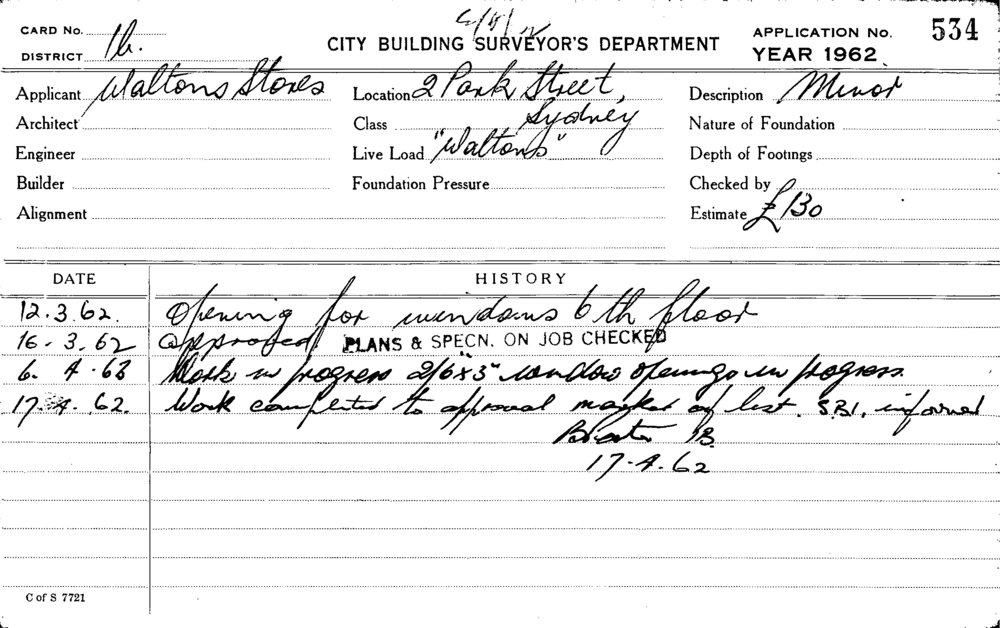 CARD No.
DISTRICT 16.
CITY BUILDING SURVEYOR'S DEPARTMENT
APPLICATION No. 534
YEAR 1962
Applicant Waltons Stores
Location 2 Park Street,
Sydney
Description Minor
Architect
Class
Nature of Foundation
Engineer
Live Load "Waltons"
Depth of Footings
Builder
Foundation Pressure
Checked by
Alignment
Estimate £130
DATE HISTORY
12.3.62. Opening for windows 6th floor
16-3.62 approved PLANS & SPECN. ON JOB CHECKED
6. 4.63 Work in progress 2/6"x3" window openings in progress.
17.4.62. Work completed to approval marked off list. S.B.I. informed
17-4.62
C of S 7721